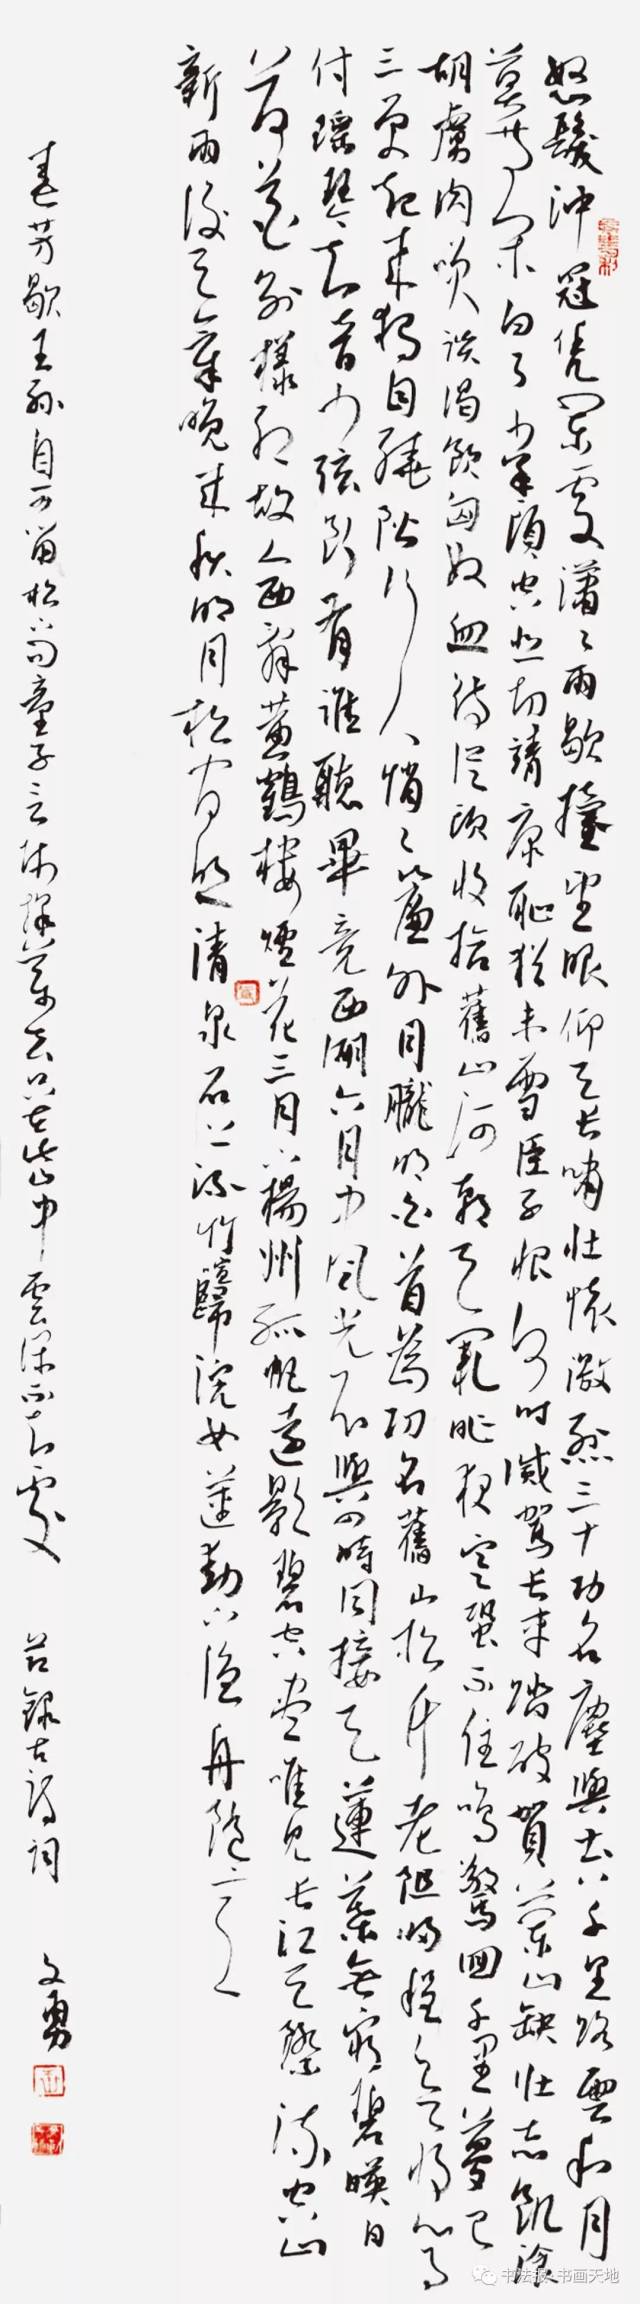 怒髮沖冠凭闌處瀟〻雨歇擡望眼仰天長嘯壯懷激烈三十功名塵與土八千里路雲和月
莫等閑白了少年頭空悲切靖康恥猶未雪臣子恨何時滅駕長車踏破賀蘭山缺壯志飢飡
胡虜肉笑談渴飲匈奴血待從頭收拾舊山河朝天闕昨夜寒蛩不住鳴驚回千里夢已
三更起來獨自繞階行人悄〻簾外月朧明白首為功名舊山松竹老阻歸程欲將心事
付瑤琴知音少弦斷有誰聽畢竟西湖六月中風光不與四時同接天蓮葉無窮碧映日
荷花別樣紅故人西辭黃鶴樓煙花三月下揚州孤帆遠影碧空盡唯見長江天際流空山
新雨後天氣晚來秋明月松間照清泉石上流竹喧歸浣女蓮動下漁舟隨意
春芳歇王孫自可留松下問童子言師採藥去只在此山中雲深不知處 节錄古詩詞 文勇
书法报·书画天地